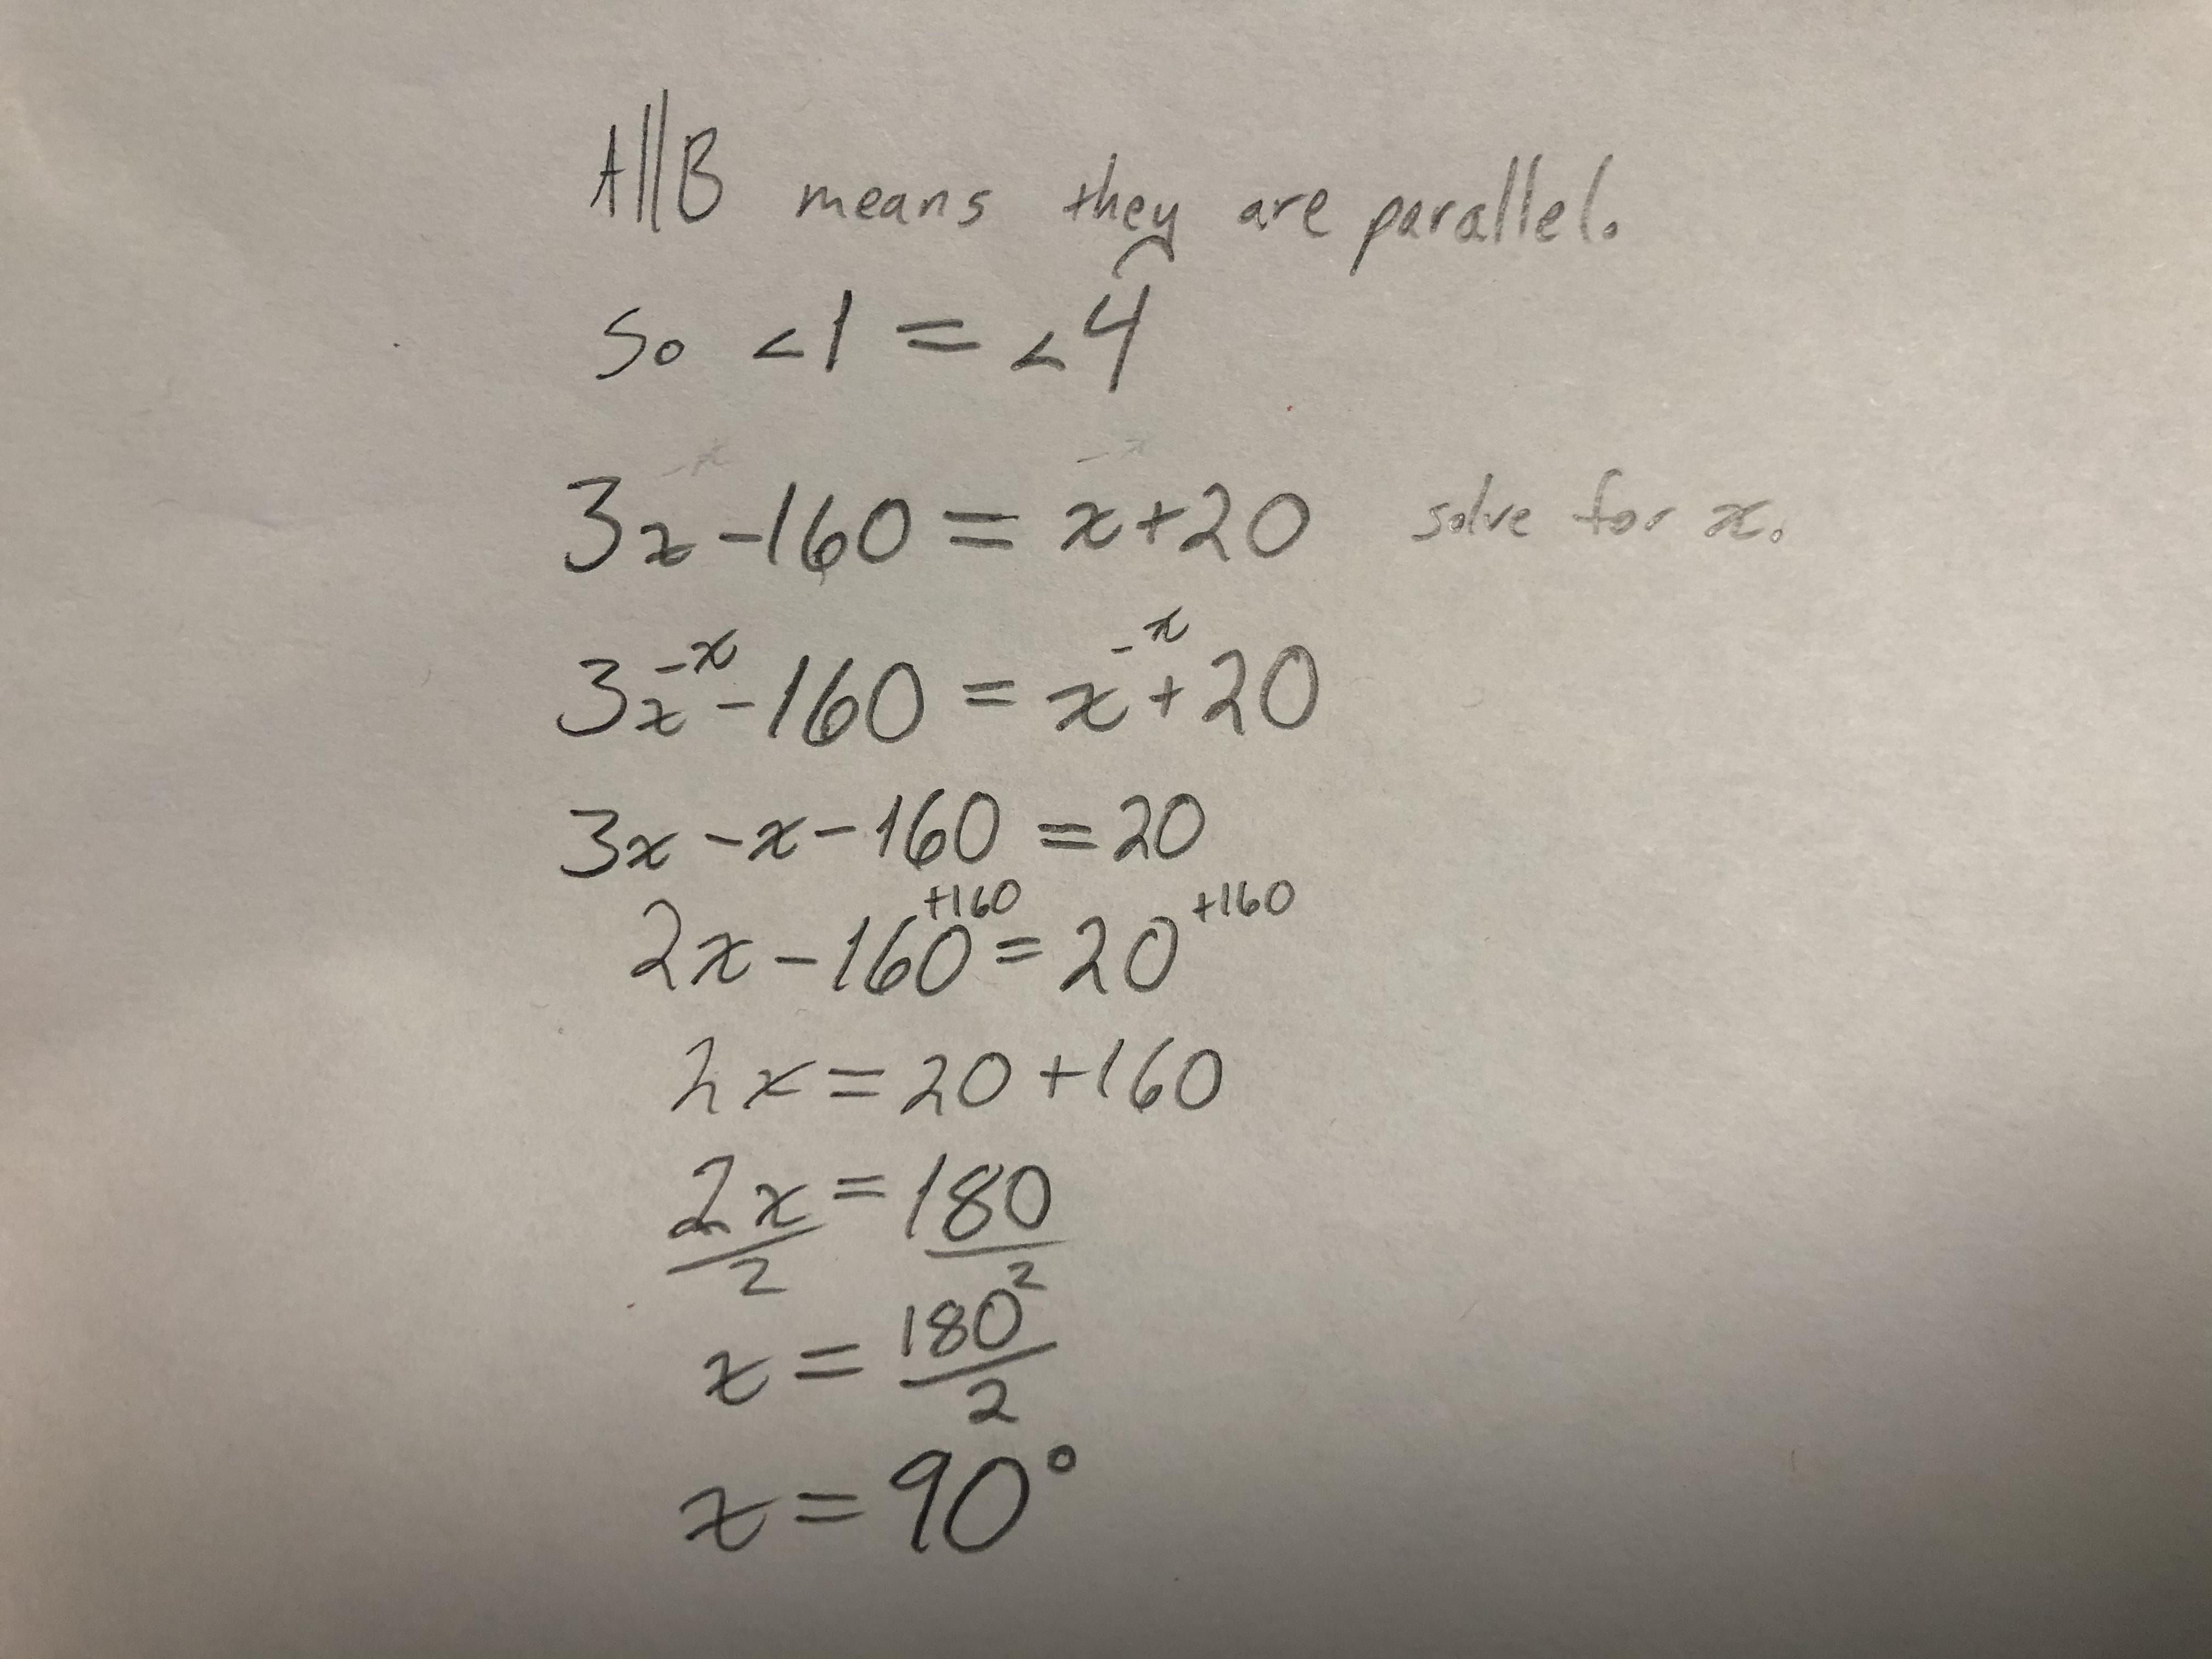 A||B means they are parallel.
So <1 = <4
3x-160 = x+20 solve for x.
3x-x-160 = x-x+20
3x-x-160 = 20
2x-160+160 = 20+160
2x = 20+160
2x/2 = 180/2
x = 180/2
x = 90°